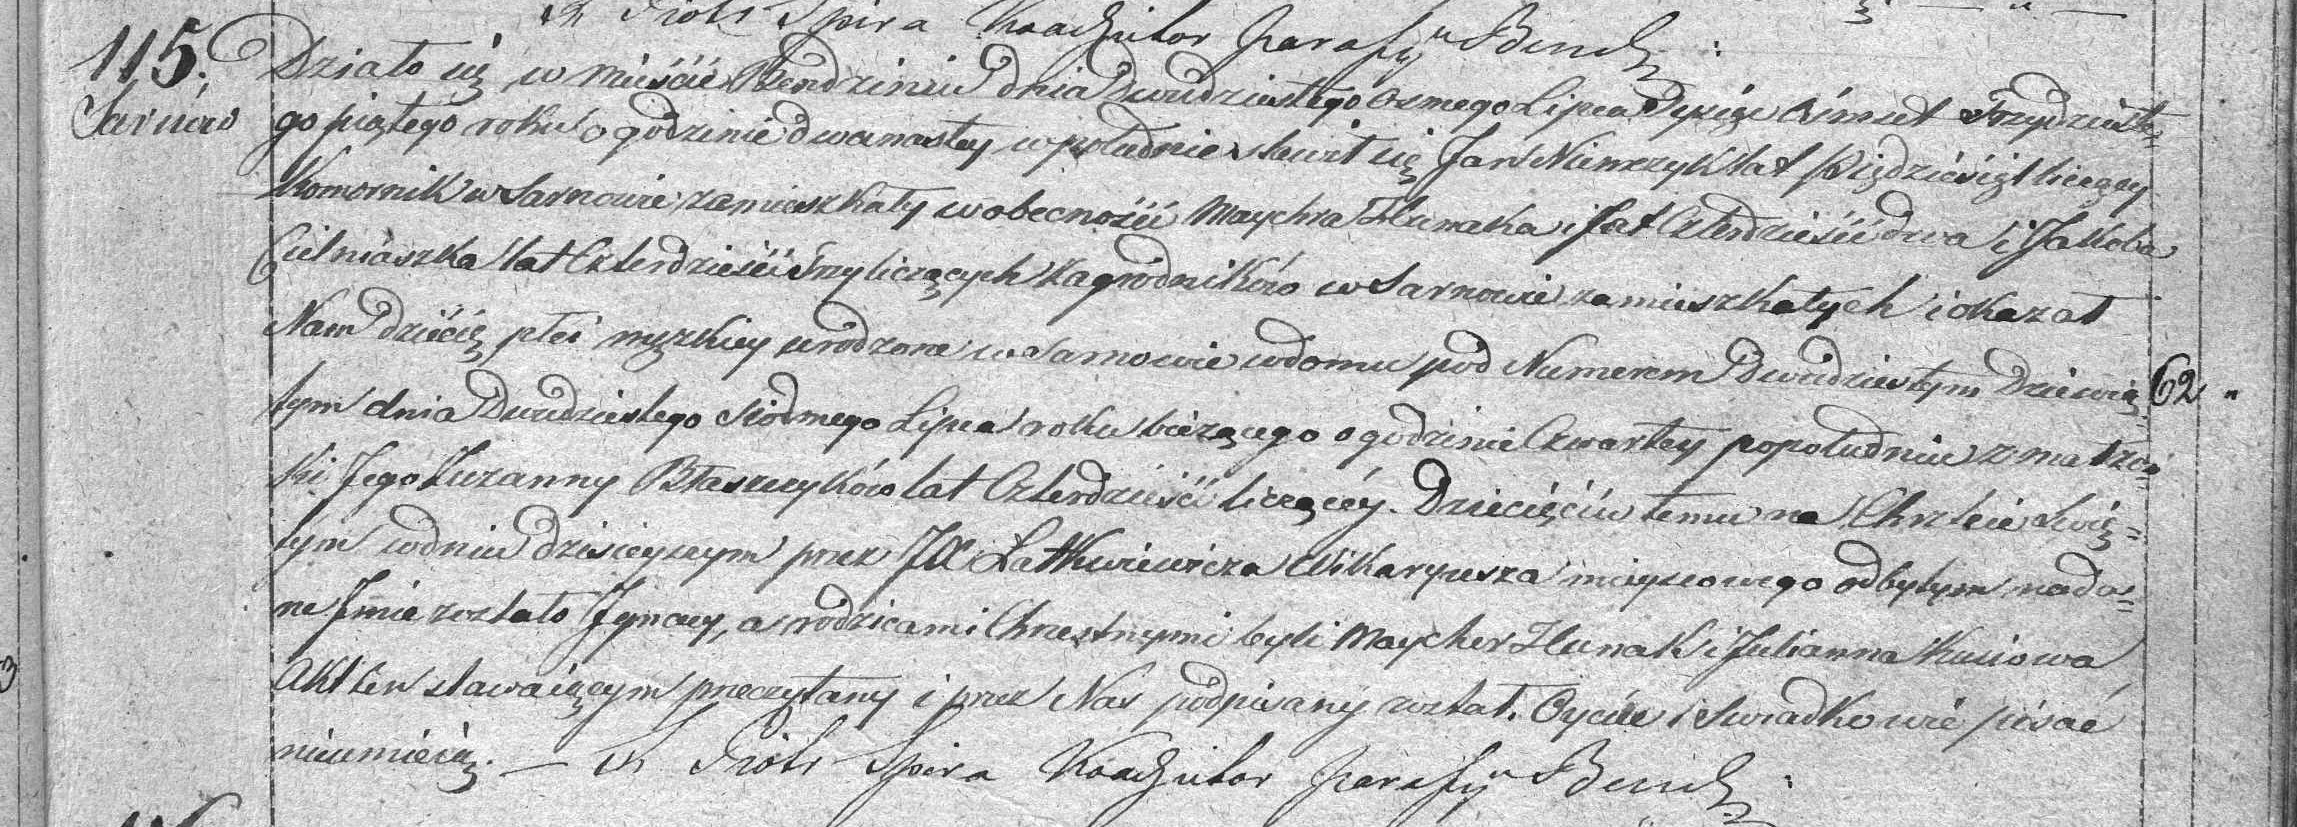 X Piotr Spira Koadjutor Parafij Bendz:
115. Działo się w mieście Bendzinie dnia Dwudziestego Osmego Lipca Tysiąc Ośmset Trzydzieste=
Sarnów go piątego roku o godzinie dwunastey w południe stawił się Jan Niemczyk lat Pięćdziesiąt liczący
Komornik w Sarnowie zamieszkały w obecności Maychra Hunaka lat Czterdzieści dwa i Jakoba
Cielniaszka lat Czterdzieści trzy liczących Zagrodników w Sarnowie zamieszkałych i okazał
Nam dziecię płci męzkiey urodzone w Sarnowie w domu pod Numerem Dwudziestym Dziewią= 62 "
tym dnia Dwudziestego Siodmego Lipca roku bieżącego o godzinie Czwartey popołudniu z małżon=
ki Jego Zuzanny Błaszczyków lat Czterdzieści liczącéy. Dziecięciu temu na Chrzcie Swię=
tym w dniu dzisieyszym przez JX Latkiewicza Wikaryusza mieyscowego odbytym nada=
ne Imie zostało Jgnacy, a rodzicami Chrzestnymi byli Maycher Hunak i Julianna Kusiowa
Akt ten stawaiącym przeczytany i przez Nas podpisany został. Oyciec i Swiadkowie pisać
nieumieią. — X Piotr Spira Koadjutor Parafij Bendz: